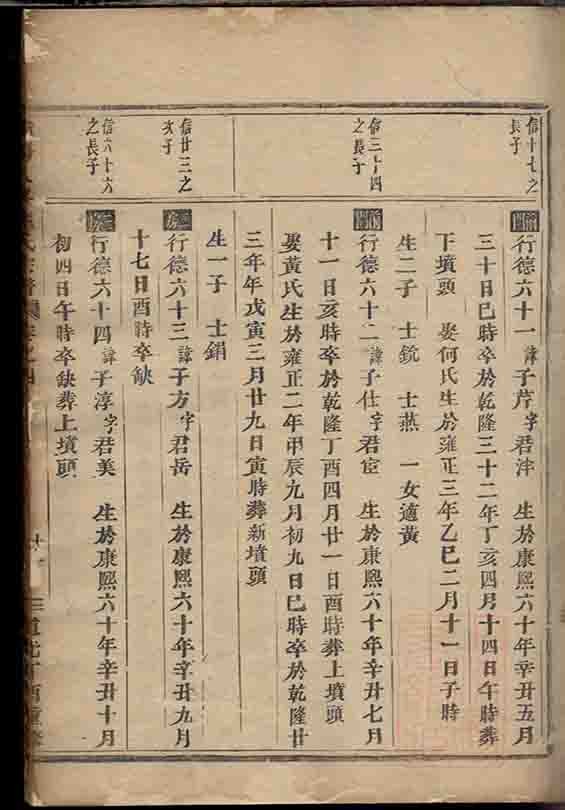 信十七之
長子
行德六十一諱子芹字君泮 生於康熙六十年辛丑五月
三十日巳時卒於乾隆三十二年丁亥四月十四日午時葬
下墳頭 娶何氏生於雍正三年乙巳二月十一日子時
生二子 士銃 士燕 一女適黃
信三十四
之長子
行德六十二諱子仕字君宦 生於康熙六十年辛丑七月
十一日亥時卒於乾隆丁酉四月廿一日酉時葬上墳頭
娶黃氏生於雍正二年甲辰九月初九日巳時卒於乾隆廿
三年年戊寅三月廿九日寅時葬新墳頭
生一子 士鋗
信廿三之
次子
行德六十三諱子方字君岳 生於康熙六十年辛丑九月
十七日酉時卒缺
信六十六
之長子
行德六十四諱子淳字君美 生於康熙六十年辛丑十月
初四日午時卒缺葬上墳頭